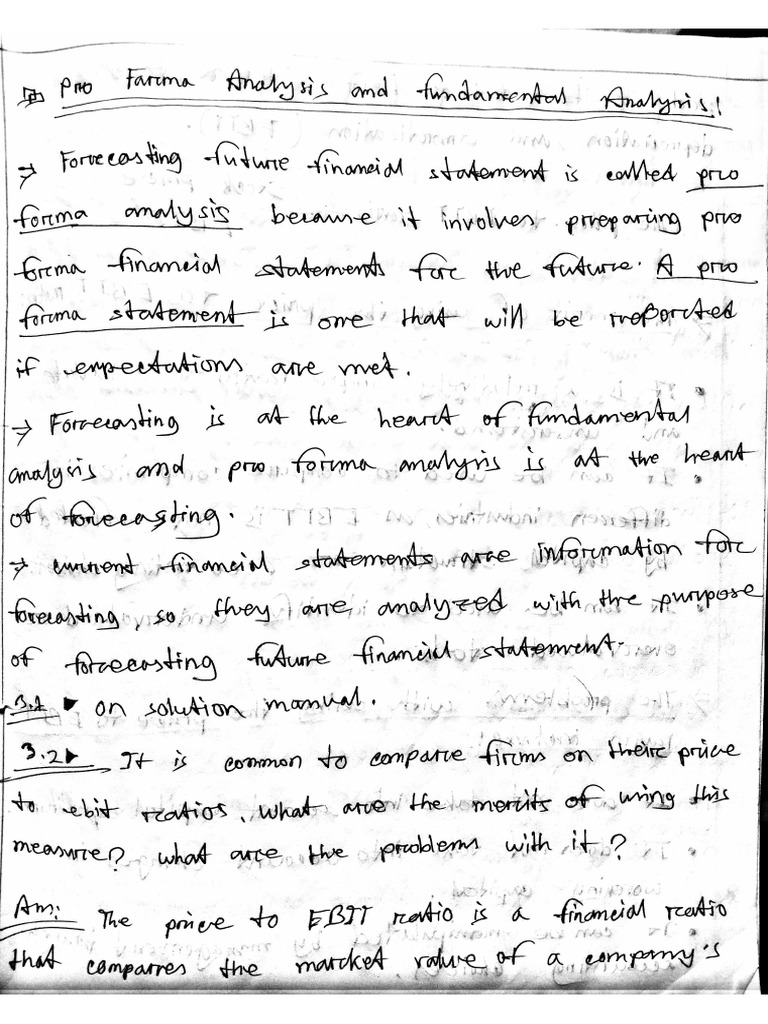 Pro Forma Analysis and fundamental Analysis!
→ Forecasting future financial statement is called pro
forma analysis because it involves preparing pro
forma financial statements for the future. A pro
forma statement is one that will be reported
if expectations are met.
→ Forecasting is at the heart of fundamental
analysis and pro forma analysis is at the heart
of forecasting.
→ current financial statements are information for
forecasting, so they are analyzed with the purpose
of forecasting future financial statement.
3.1 ▸ on solution manual.
3.2 ▸ It is common to compare firms on their price
to ebit ratios. What are the merits of using this
measure? what are the problems with it?
Ans: The price to EBIT ratio is a financial ratio
that compares the market value of a company's